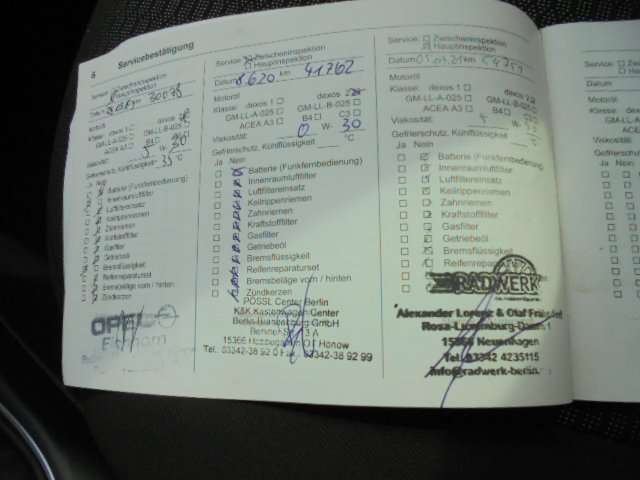 Servicebestätigung
Service: Zwischeninspektion
Hauptinspektion
Datum km 30078
Motoröl
Klasse: dexos 1
GM-LL-A-025 GM-LL-B-025
ACEA A3 B4
Viskosität: 5 W- 30
Gefrierschutz, Kühlflüssigkeit °C
Ja Nein
Batterie (Funkfernbedienung)
Innenraumluftfilter
Luftfiltereinsatz
Keilrippenriemen
Zahnriemen
Kraftstofffilter
Gasfilter
Getriebeöl
Bremsflüssigkeit
Reifenreparaturset
Bremsbeläge vorn / hinten
Zündkerzen
OPEL
Service: Zwischeninspektion
Hauptinspektion
Datum km 41762
Motoröl
Klasse: dexos 1 dexos 2
GM-LL-A-025 GM-LL-B-025
ACEA A3 B4 C3
Viskosität: 0 W- 30
Gefrierschutz, Kühlflüssigkeit °C
Ja Nein
Batterie (Funkfernbedienung)
Innenraumluftfilter
Luftfiltereinsatz
Keilrippenriemen
Zahnriemen
Kraftstofffilter
Gasfilter
Getriebeöl
Bremsflüssigkeit
Reifenreparaturset
Bremsbeläge vorn / hinten
Zündkerzen
PÖSSL Center Berlin
K&K Kastenwagen Center
Berlin Brandenburg GmbH
15366 Hönow
Tel.: 03342-38 92 0 Fax: 03342-38 92 99
Service: Zwischeninspektion
Hauptinspektion
Datum km
Motoröl
Klasse: dexos 1 dexos 2
GM-LL-A-025 GM-LL-B-025
ACEA A3 B4
Viskosität: W-
Gefrierschutz, Kühlflüssigkeit °C
Ja Nein
Batterie (Funkfernbedienung)
Innenraumluftfilter
Luftfiltereinsatz
Keilrippenriemen
Zahnriemen
Kraftstofffilter
Gasfilter
Getriebeöl
Bremsflüssigkeit
RADWERK
Alexander Lorenz & Olaf
Rosa-Luxemburg-Damm 1
15366 Neuenhagen
Tel: 03342 4235115
info@radwerk-berlin
Service:
Datum
Motoröl
Klasse:
Viskosität:
Gefrierschutz
Ja Nein